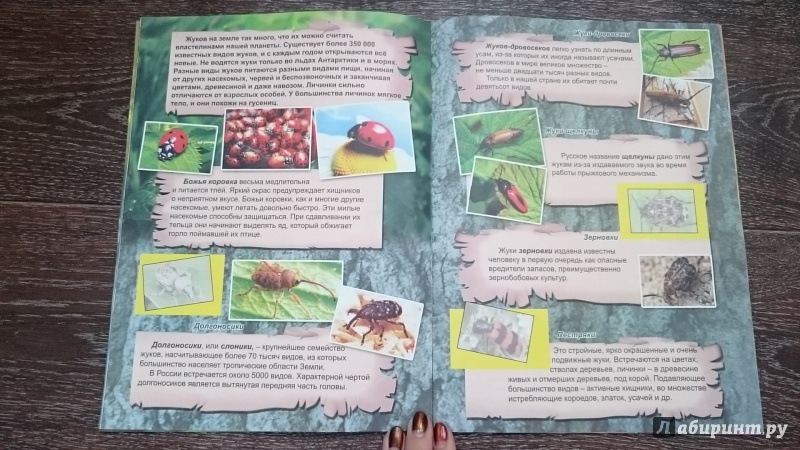 Жуков на земле так много, что их можно считать
властелинами нашей планеты. Существует более 350 000
известных видов жуков, и с каждым годом открываются всё
новые. Не водятся жуки только во льдах Антарктики и в морях.
Разные виды жуков питаются разными видами пищи, начиная
от других насекомых, червей и беспозвоночных и заканчивая
цветами, древесиной и даже навозом. Личинки сильно
отличаются от взрослых особей. У большинства личинок мягкое
тело, и они похожи на гусениц.
Божья коровка весьма медлительна
и питается тлёй. Яркий окрас предупреждает хищников
о неприятном вкусе. Божьи коровки, как и многие другие
насекомые, умеют летать довольно быстро. Эти милые
насекомые способны защищаться. При сдавливании их
тельца они начинают выделять яд, который обжигает
горло поймавшей их птице.
Долгоносики
Долгоносики, или слоники, – крупнейшее семейство
жуков, насчитывающее более 70 тысяч видов, из которых
большинство населяет тропические области Земли.
В России встречается около 5000 видов. Характерной чертой
долгоносиков является вытянутая передняя часть головы.
Жуки-дровосеки
Жуков-дровосеков легко узнать по длинным
усам, из-за которых их иногда называют усачами.
Дровосеков в мире великое множество –
не меньше двадцати тысяч разных видов.
Только в нашей стране их обитает почти
девятьсот видов.
Жуки-щелкуны
Русское название щелкуны дано этим
жукам из-за издаваемого звука во время
работы прыжкового механизма.
Зерновки
Жуки зерновки издавна известны
человеку в первую очередь как опасные
вредители запасов, преимущественно
зернобобовых культур.
Пестряки
Это стройные, ярко окрашенные и очень
подвижные жуки. Встречаются на цветах,
стволах деревьев, личинки – в древесине
живых и отмерших деревьев, под корой. Подавляющее
большинство видов – активные хищники, во множестве
истребляющие короедов, златок, усачей и др.
Лабиринт.ру